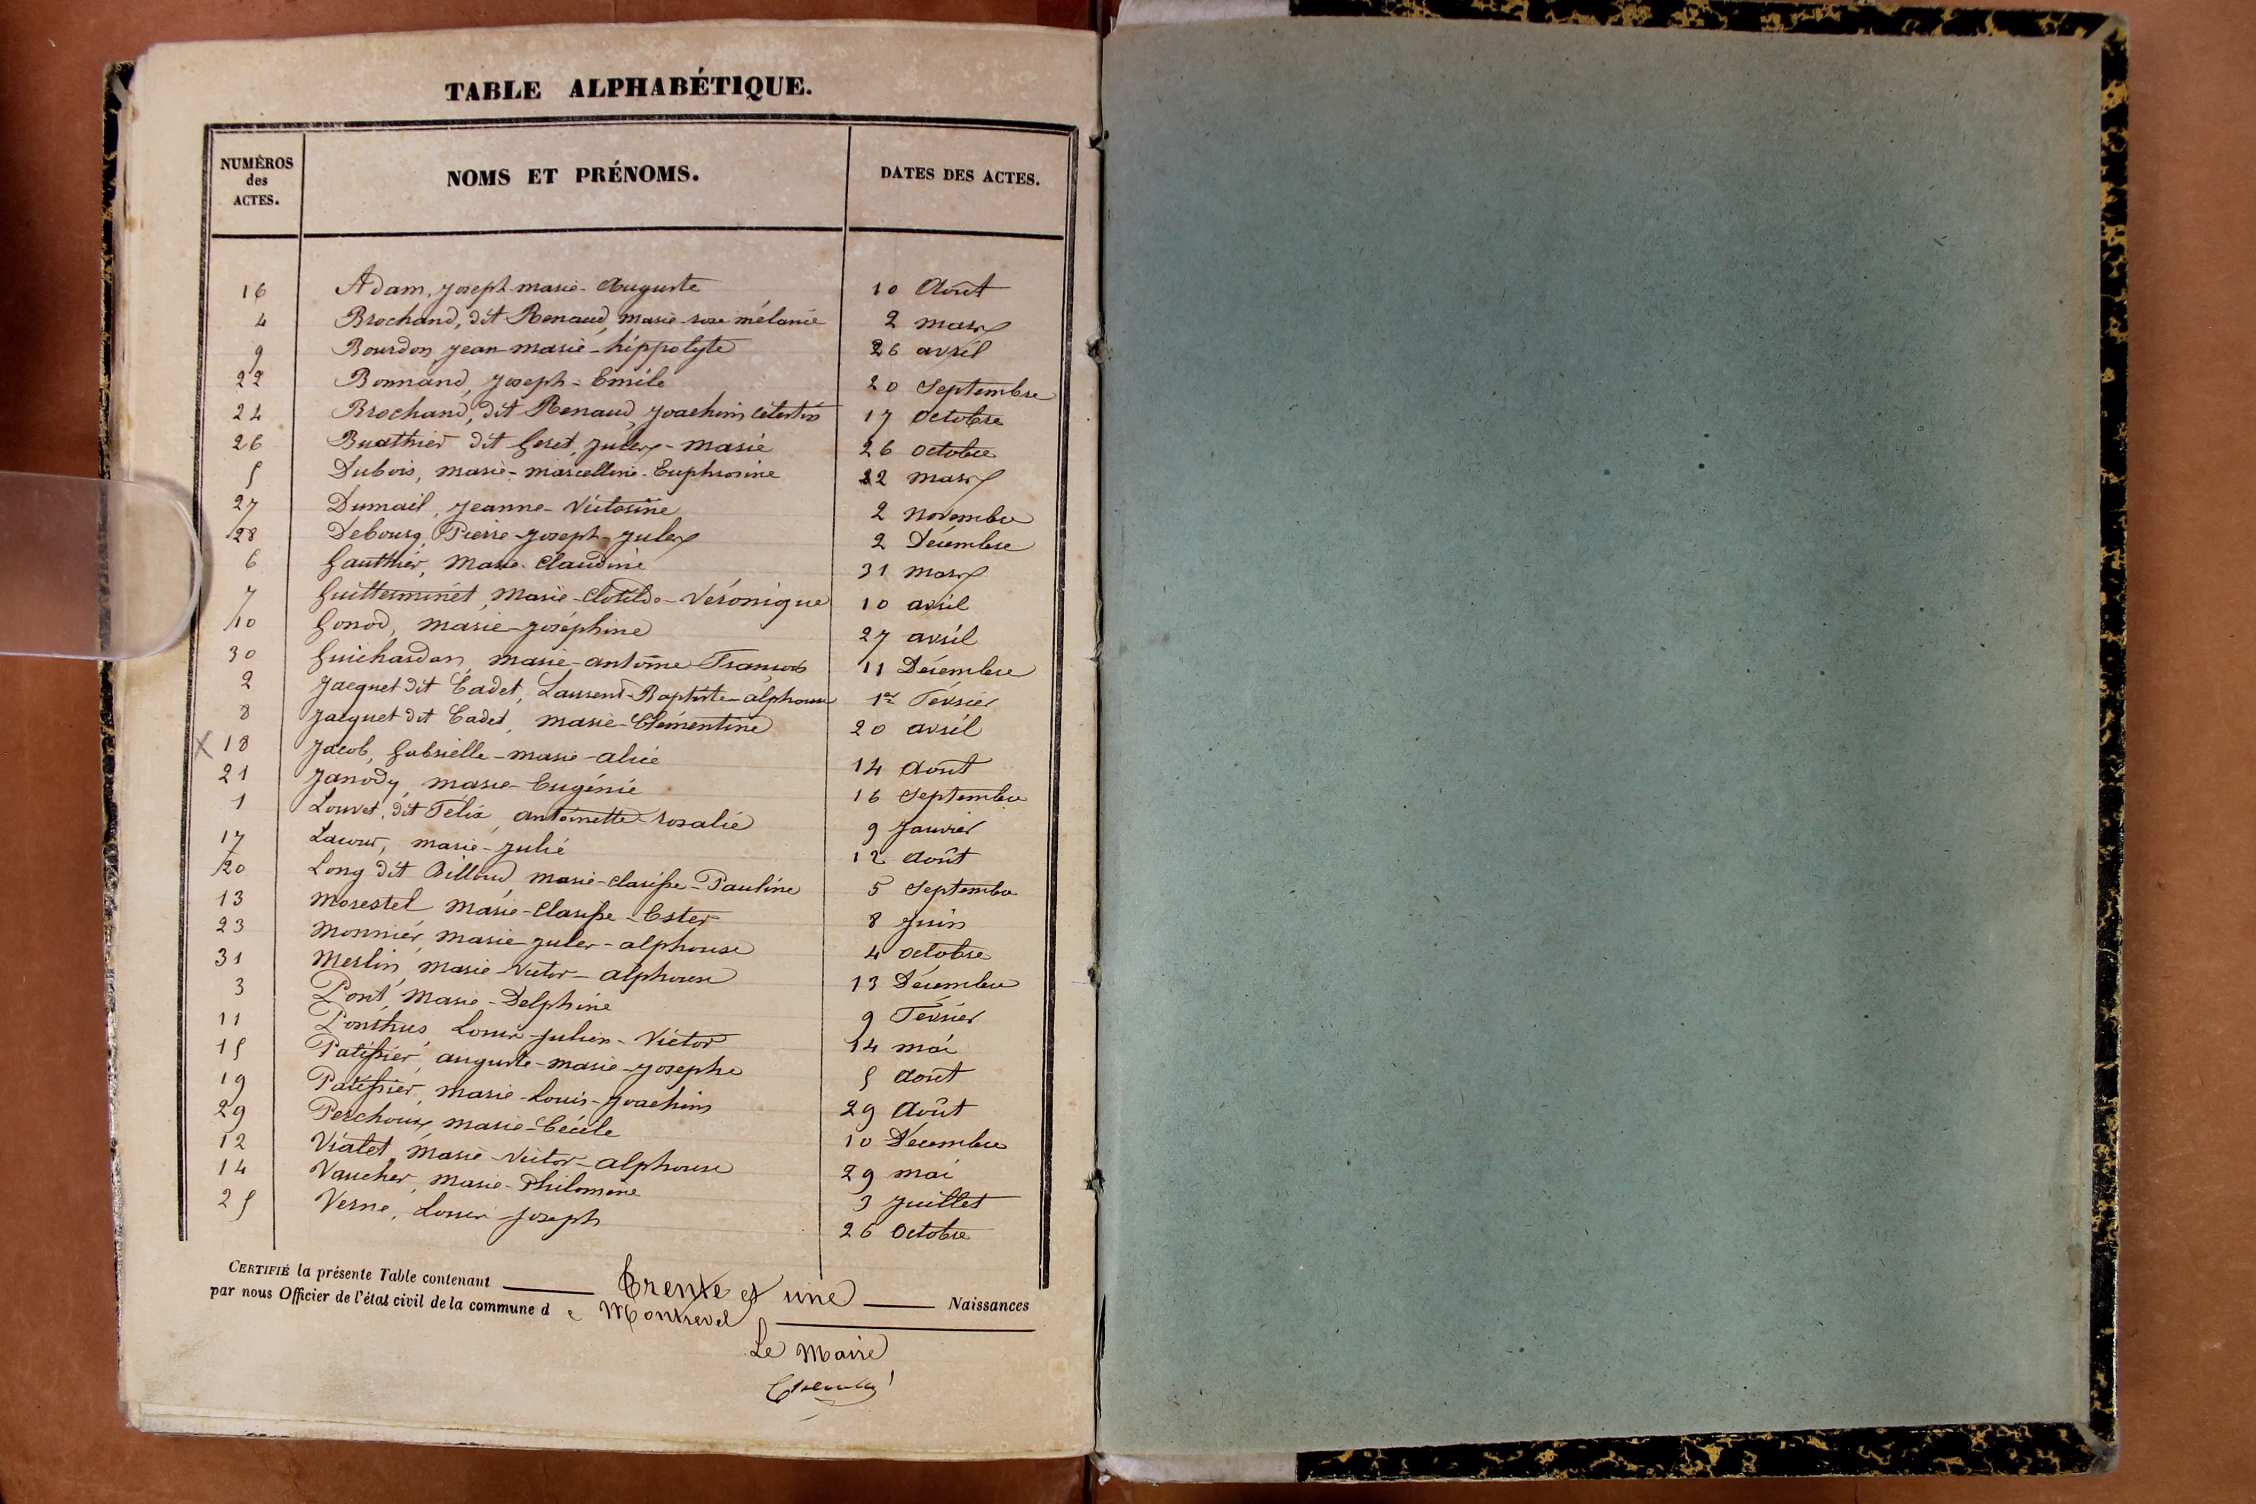 TABLE ALPHABÉTIQUE.
NUMÉROS des ACTES. NOMS ET PRÉNOMS. DATES DES ACTES.
16 Adam, Joseph-marie-Auguste 10 Août
4 Brochand, dit Renaud, marie-rose mélanie 2 mars
9 Bourdon Jean-marie-hippolyte 26 avril
22 Bonnand, Joseph-Emile 20 Septembre
24 Brochand, dit Renaud, Joachim célestin 17 octobre
26 Buathier dit Geset, Jules-marie 26 octobre
5 Dubois, marie-marcelline-Euphrosine 22 mars
27 Dumail, Jeanne-Victorine 2 novembre
28 Debourg, Pierre-Joseph-Jules 2 Décembre
6 Gauthier, Marie-Claudine 31 mars
7 Guilleminet, Marie-Clotilde-Véronique 10 avril
10 Gonod, marie-Joséphine 27 avril
30 Guichardon, marie-antoine-François 11 Décembre
2 Jacquet dit Cadet, Laurent-Baptiste-alphonse 1er Février
8 Jacquet dit Cadet, marie-Clémentine 20 avril
X 18 Jacob, Gabrielle-marie-alice 14 Août
21 Janody, marie-Eugénie 16 Septembre
1 Louvet, dit Félix, antoinette-rosalie 9 Janvier
17 Lacour, marie-Julie 12 Août
20 Long dit Billoud, marie-clarisse-Pauline 5 Septembre
13 Morestel Marie-Clarisse-Ester 8 Juin
23 Monnier, marie Jules-alphonse 4 octobre
31 Merlin, Marie-Victor-alphonse 13 Décembre
3 Pont, Marie-Delphine 9 Février
11 Ponthus Louis-Julien-Victor 14 mai
15 Patissier, auguste-marie-Josephe 5 Août
19 Patissier, marie-Louis-Joachim 29 Août
29 Perchoux, marie-Cécile 10 Décembre
12 Vialet, marie-Victor-alphonse 29 mai
14 Vaucher, marie-Philomene 3 Juillet
25 Verne, Louis-Joseph 26 Octobre
CERTIFIÉ la présente Table contenant Trente et une Naissances
par nous Officier de l'état civil de la commune de Montrevel
Le Maire